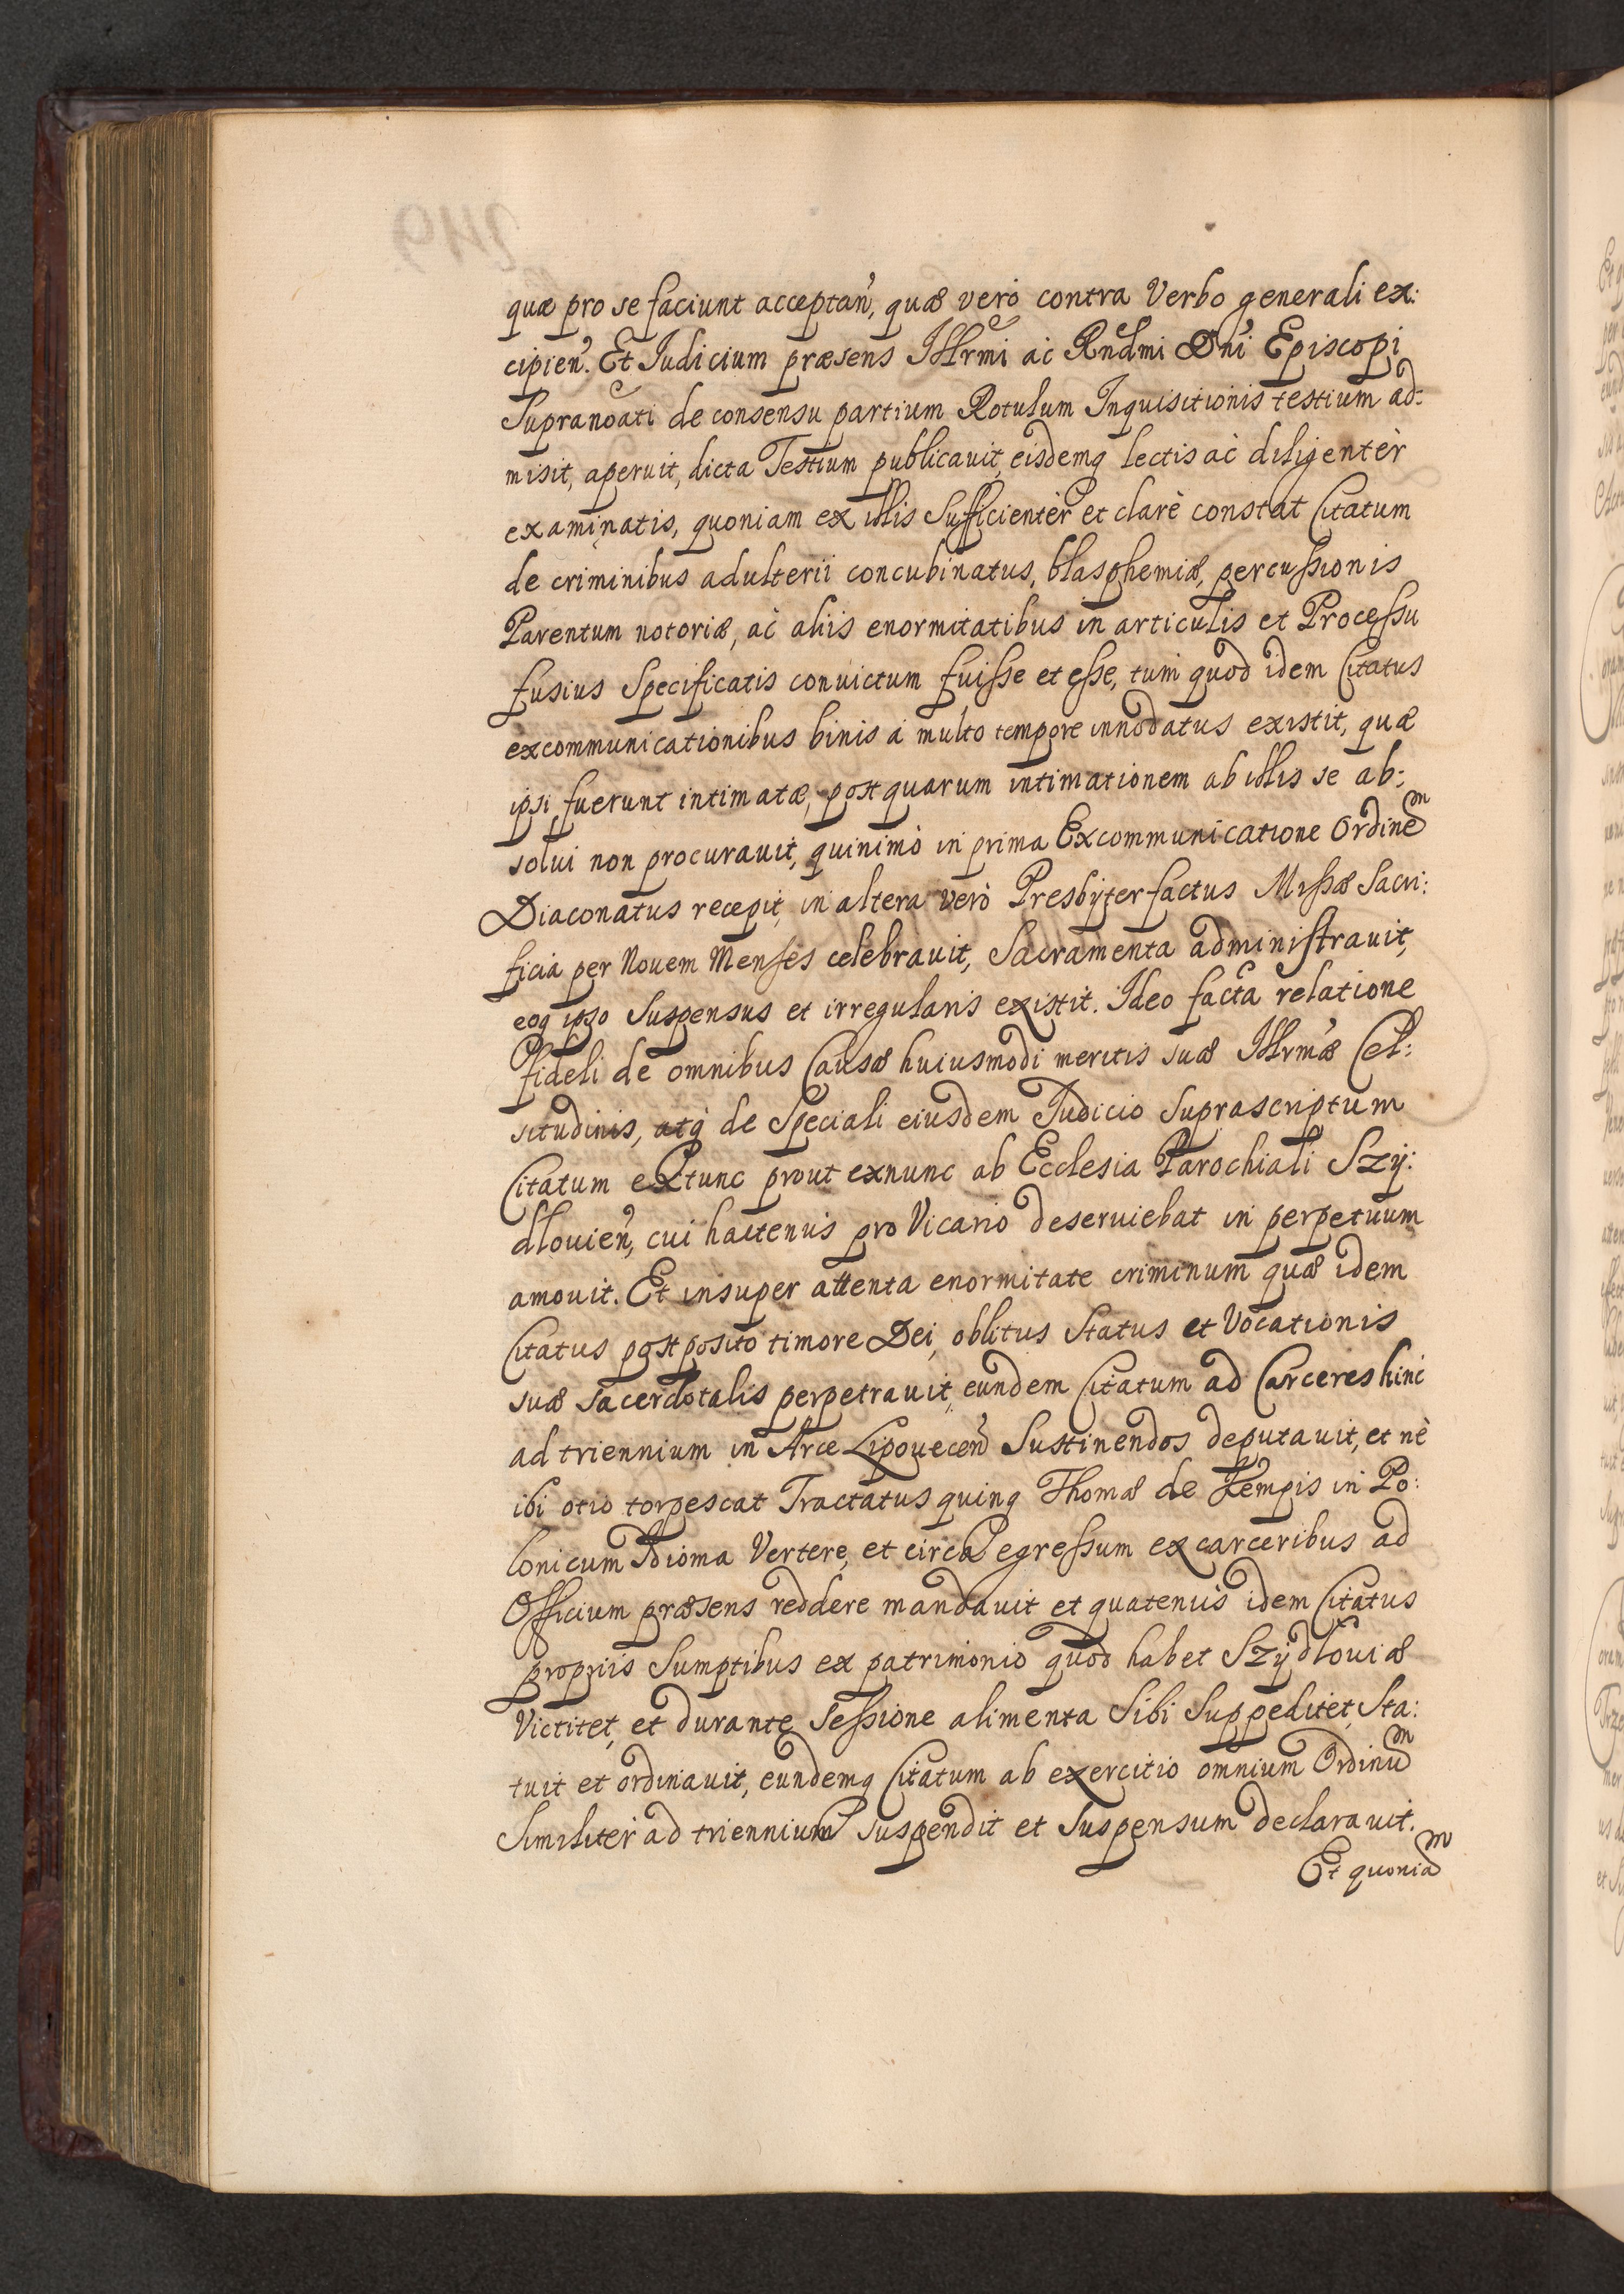 quæ pro se faciunt acceptan̄, quæ verò contra Verbo generali ex:
cipien̄. Et Iudicium præsens Illrmi ac Rndmi Dn̄i Episcopi
Supranoāti de consensu partium Rotulum Inquisitionis testium ad:
misit, aperuit, dicta Testium publicauit, eisdemq lectis ac diligentèr
examinatis, quoniam ex illis Sufficientèr et clarè constat Citatum
de criminibus adulterii concubinatus, blasphemiæ, percussionis
Parentum notoriæ, ac aliis enormitatibus in articulis et Processu
fusius Specificatis conuictum fuisse et esse, tum quod idem Citatus
excommunicationibus binis à multo tempore innodatus existit, quæ
ipsi fuerunt intimatæ, post quarum intimationem ab illis se ab:
solui non procurauit, quinimò in prima Excommunicatione Ordinem
Diaconatus recepit, in altera verò Presbyter factus Missæ Sacri:
ficia per Nouem Menses celebrauit, Sacramenta administrauit,
eoq ipso Suspensus et irregularis existit. Ideo facta relatione
fideli de omnibus Causæ huiusmodi meritis suæ Illrmæ Cel:
situdinis, atq de Speciali eiusdem Iudicio Suprascriptum
Citatum extunc prout exnunc ab Ecclesia Parochiali Szy:
dlouien̄, cui hactenus pro Vicario deseruiebat in perpetuum
amouit. Et insuper attenta enormitate criminum quæ idem
Citatus postposito timore Dei, oblitus Status et Vocationis
suæ sacerdotalis perpetrauit, eundem Citatum ad Carceres hinc
ad triennium in Arce Lipouecen̄ Sustinendos deputauit, et nè
ibi otio torpescat Tractatus quinq Thomæ de Kempis in Po:
lonicum Idioma Vertere, et circa egressum ex carceribus ad
Officium præsens reddere mandauit et quatenus idem Citatus
propriis Sumptibus ex patrimonio quod habet Szydlouiæ
Victitet, et durante Sessione alimenta Sibi Suppeditet, Sta:
tuit et ordinauit, eundemq Citatum ab exercitio omnium Ordinum
Similiter ad triennium suspendit et Suspensum declarauit.
Et quoniam